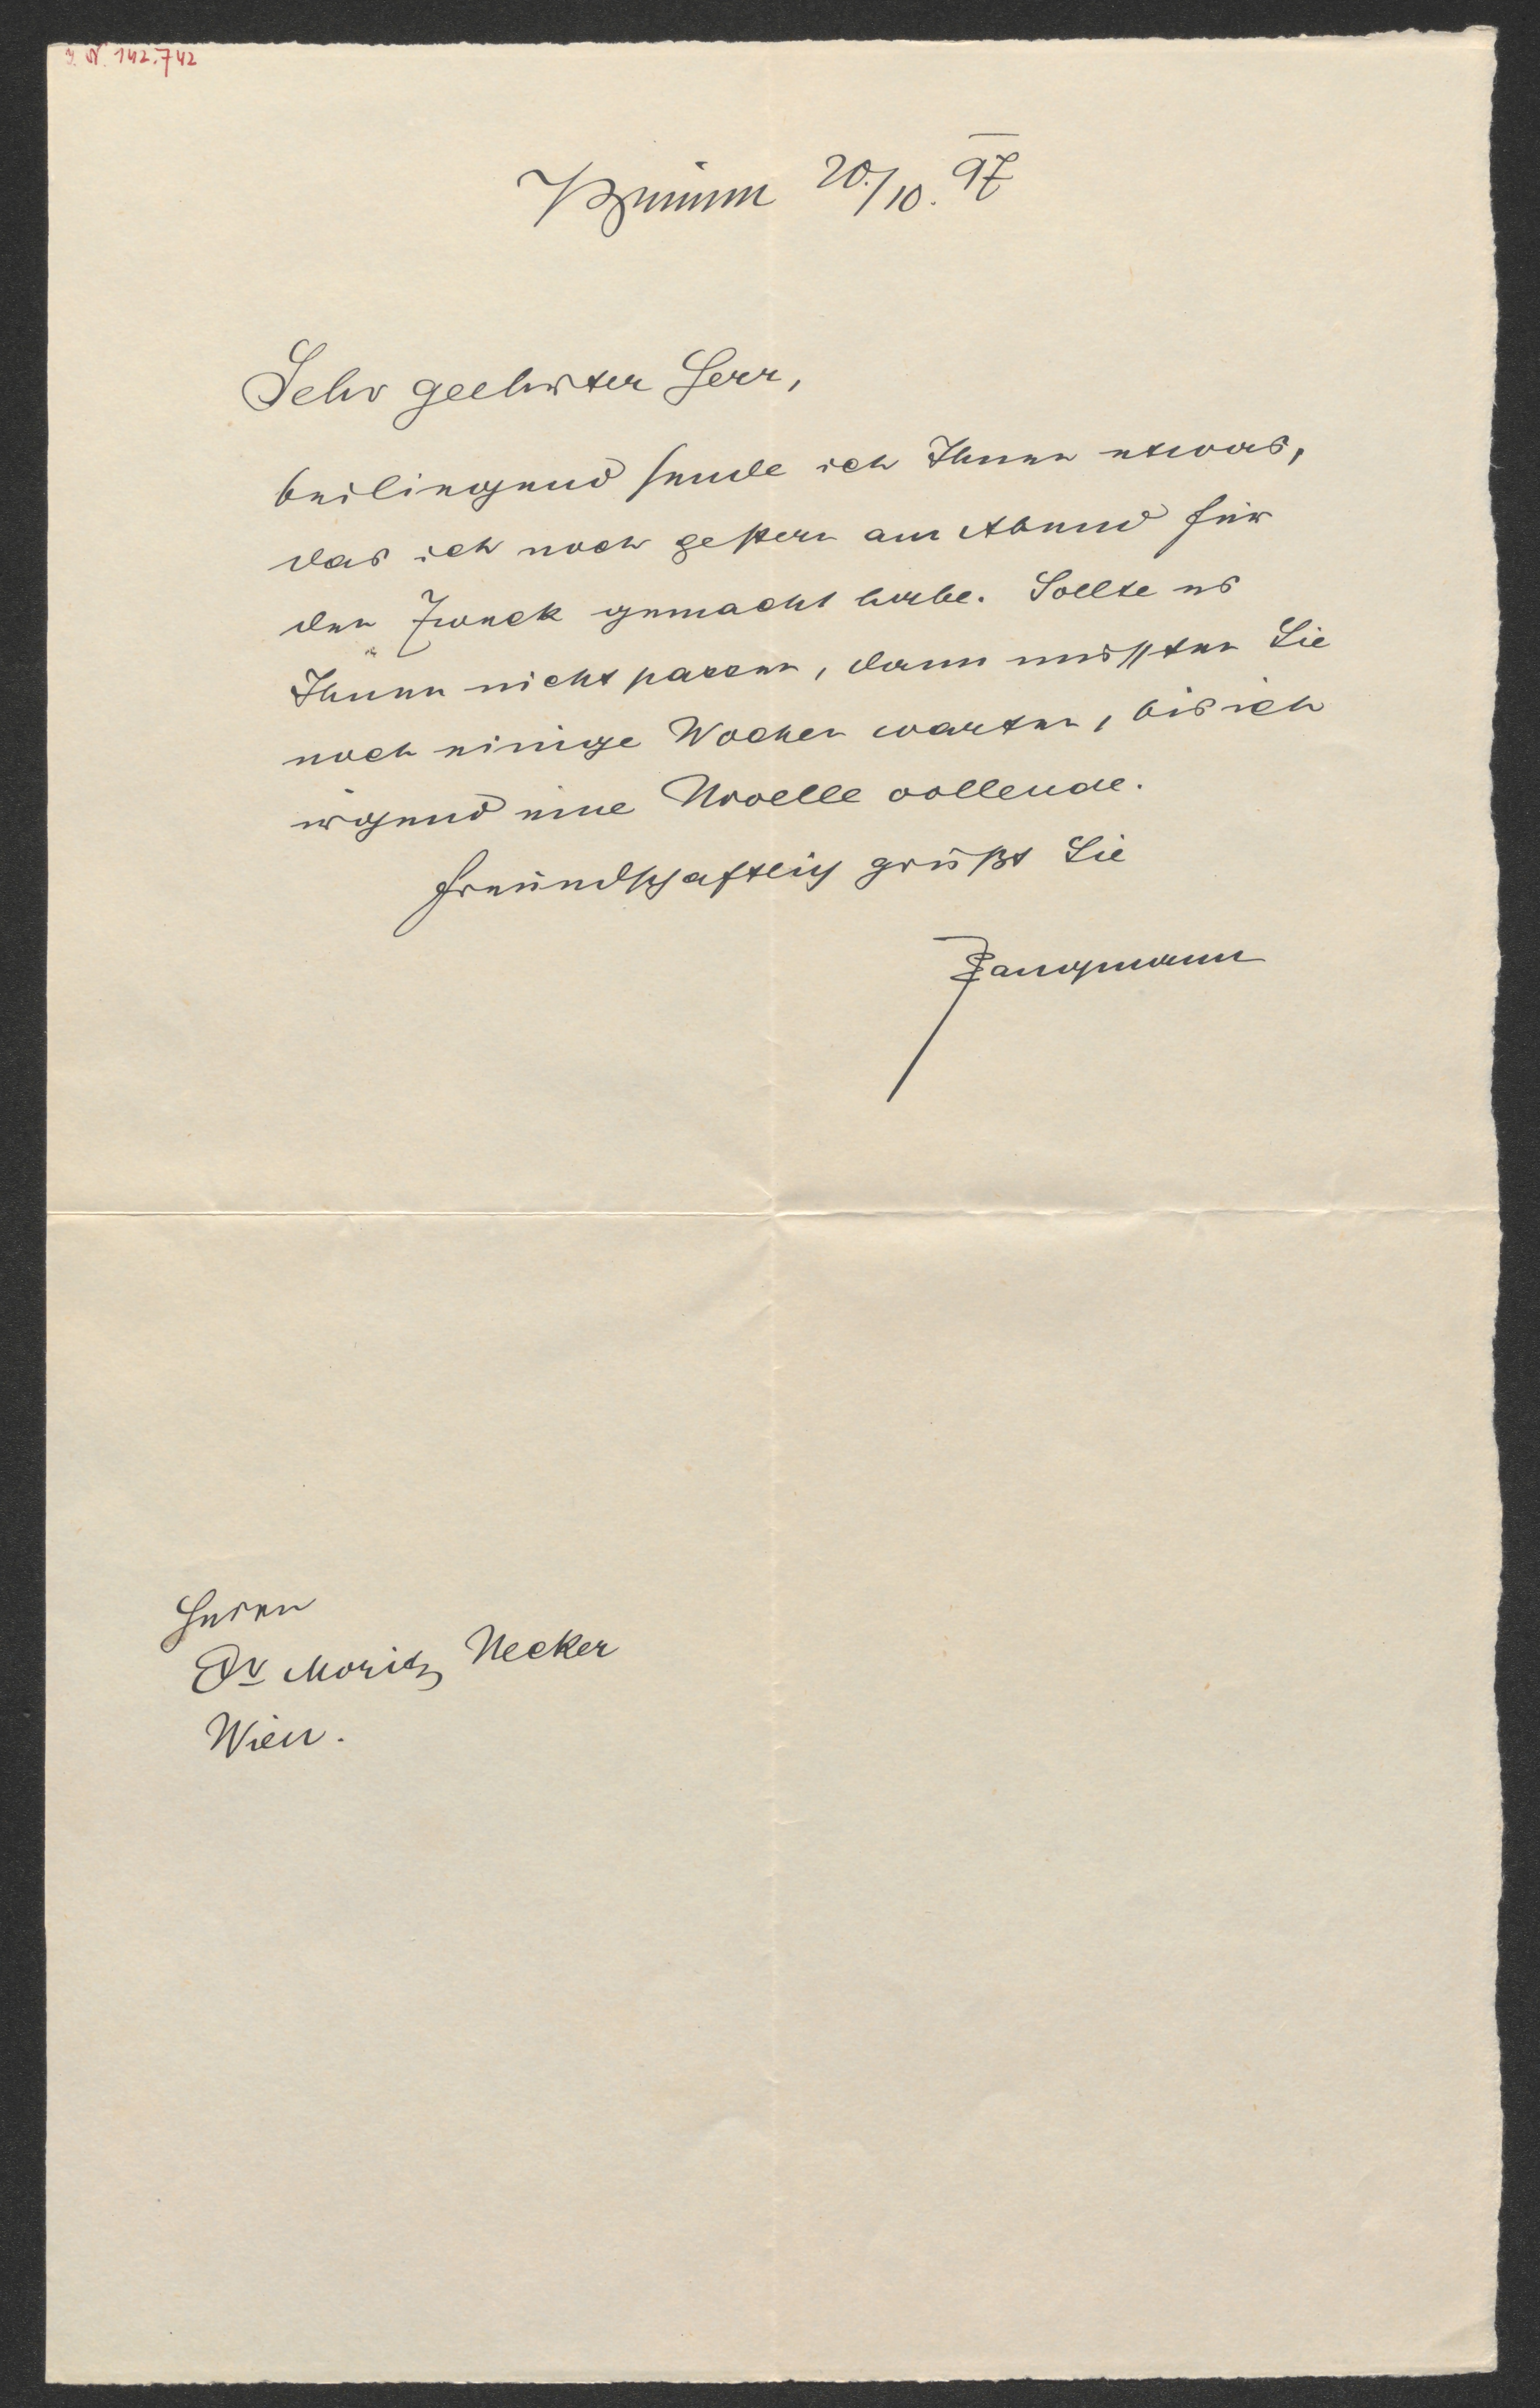 I. N. 142.742
Brünn 20./10. 97
Sehr geehrter Herr,
beiliegend sende ich Ihnen etwas,
das ich noch gestern am Abend für
den Zweck gemacht habe. Sollte es
Ihnen nicht passen, dann müssten Sie
noch einige Wochen warten, bis ich
irgend eine Novelle vollende.
Freundschaftlich grüßt Sie
Langmann
Herrn
Dr Moritz Necker
Wien.